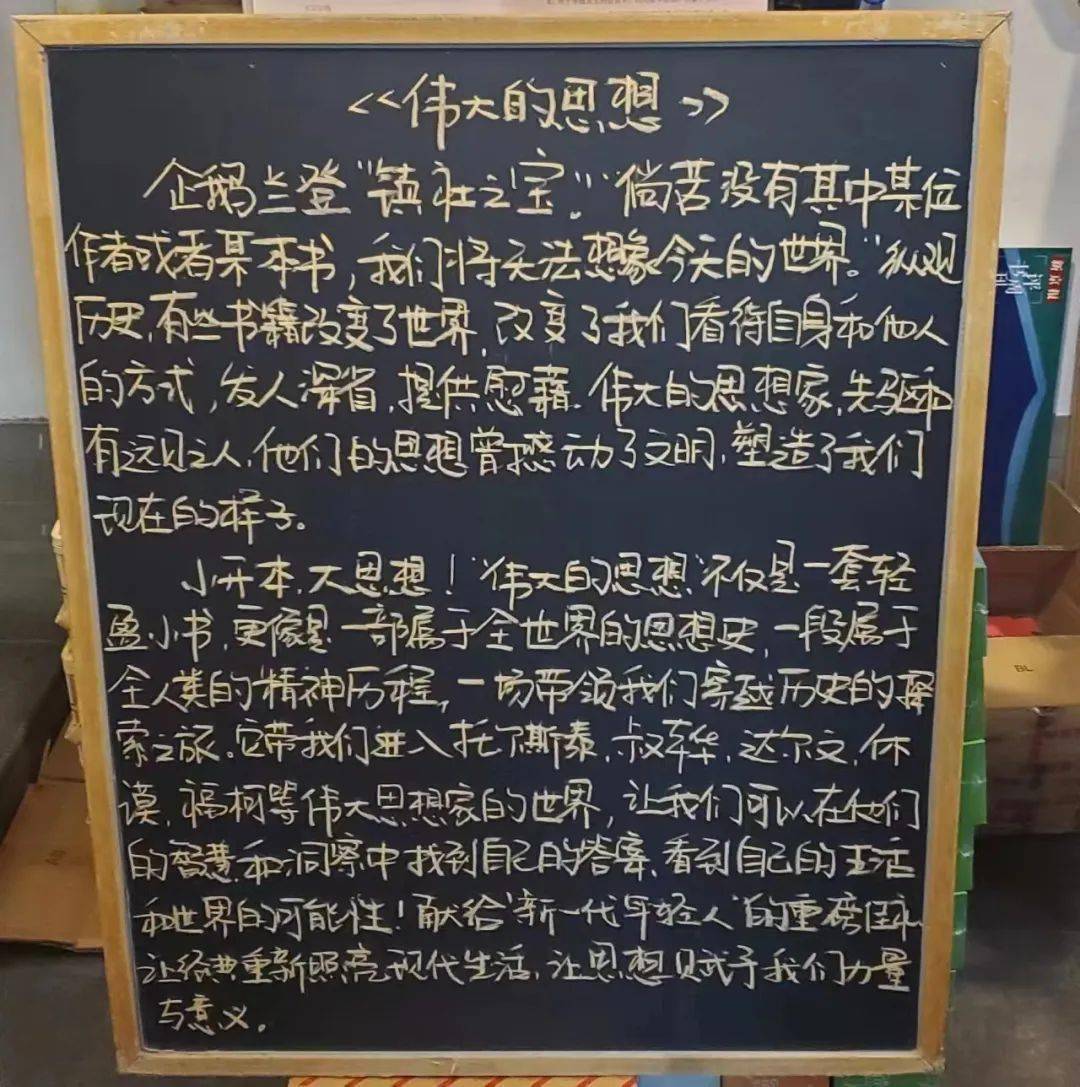 <<伟大的思想>>
企鹅兰登"镇社之宝"!"倘若没有其中某位
作者或者某本书,我们将无法想象今天的世界。"纵观
历史,有些书籍改变了世界,改变了我们看待自身和他人
的方式,发人深省,提供慰藉.伟大的思想家,先驱和
有远见之人,他们的思想曾撼动了文明,塑造了我们
现在的样子。
小开本,大思想!"伟大的思想"不仅是一套轻
盈小书,更像是一部属于全世界的思想史,一段属于
全人类的精神历程,一场带领我们穿越历史的探
索之旅。它带我们进入托尔斯泰,叔本华,达尔文,休
谟,福柯等伟大思想家的世界,让我们可以在他们
的智慧和洞察中找到自己的答案,看到自己的生活
和世界的可能性!献给"新一代年轻人"的重磅
让经典重新照亮现代生活,让思想赋予我们力量
与意义。
新京报
BL